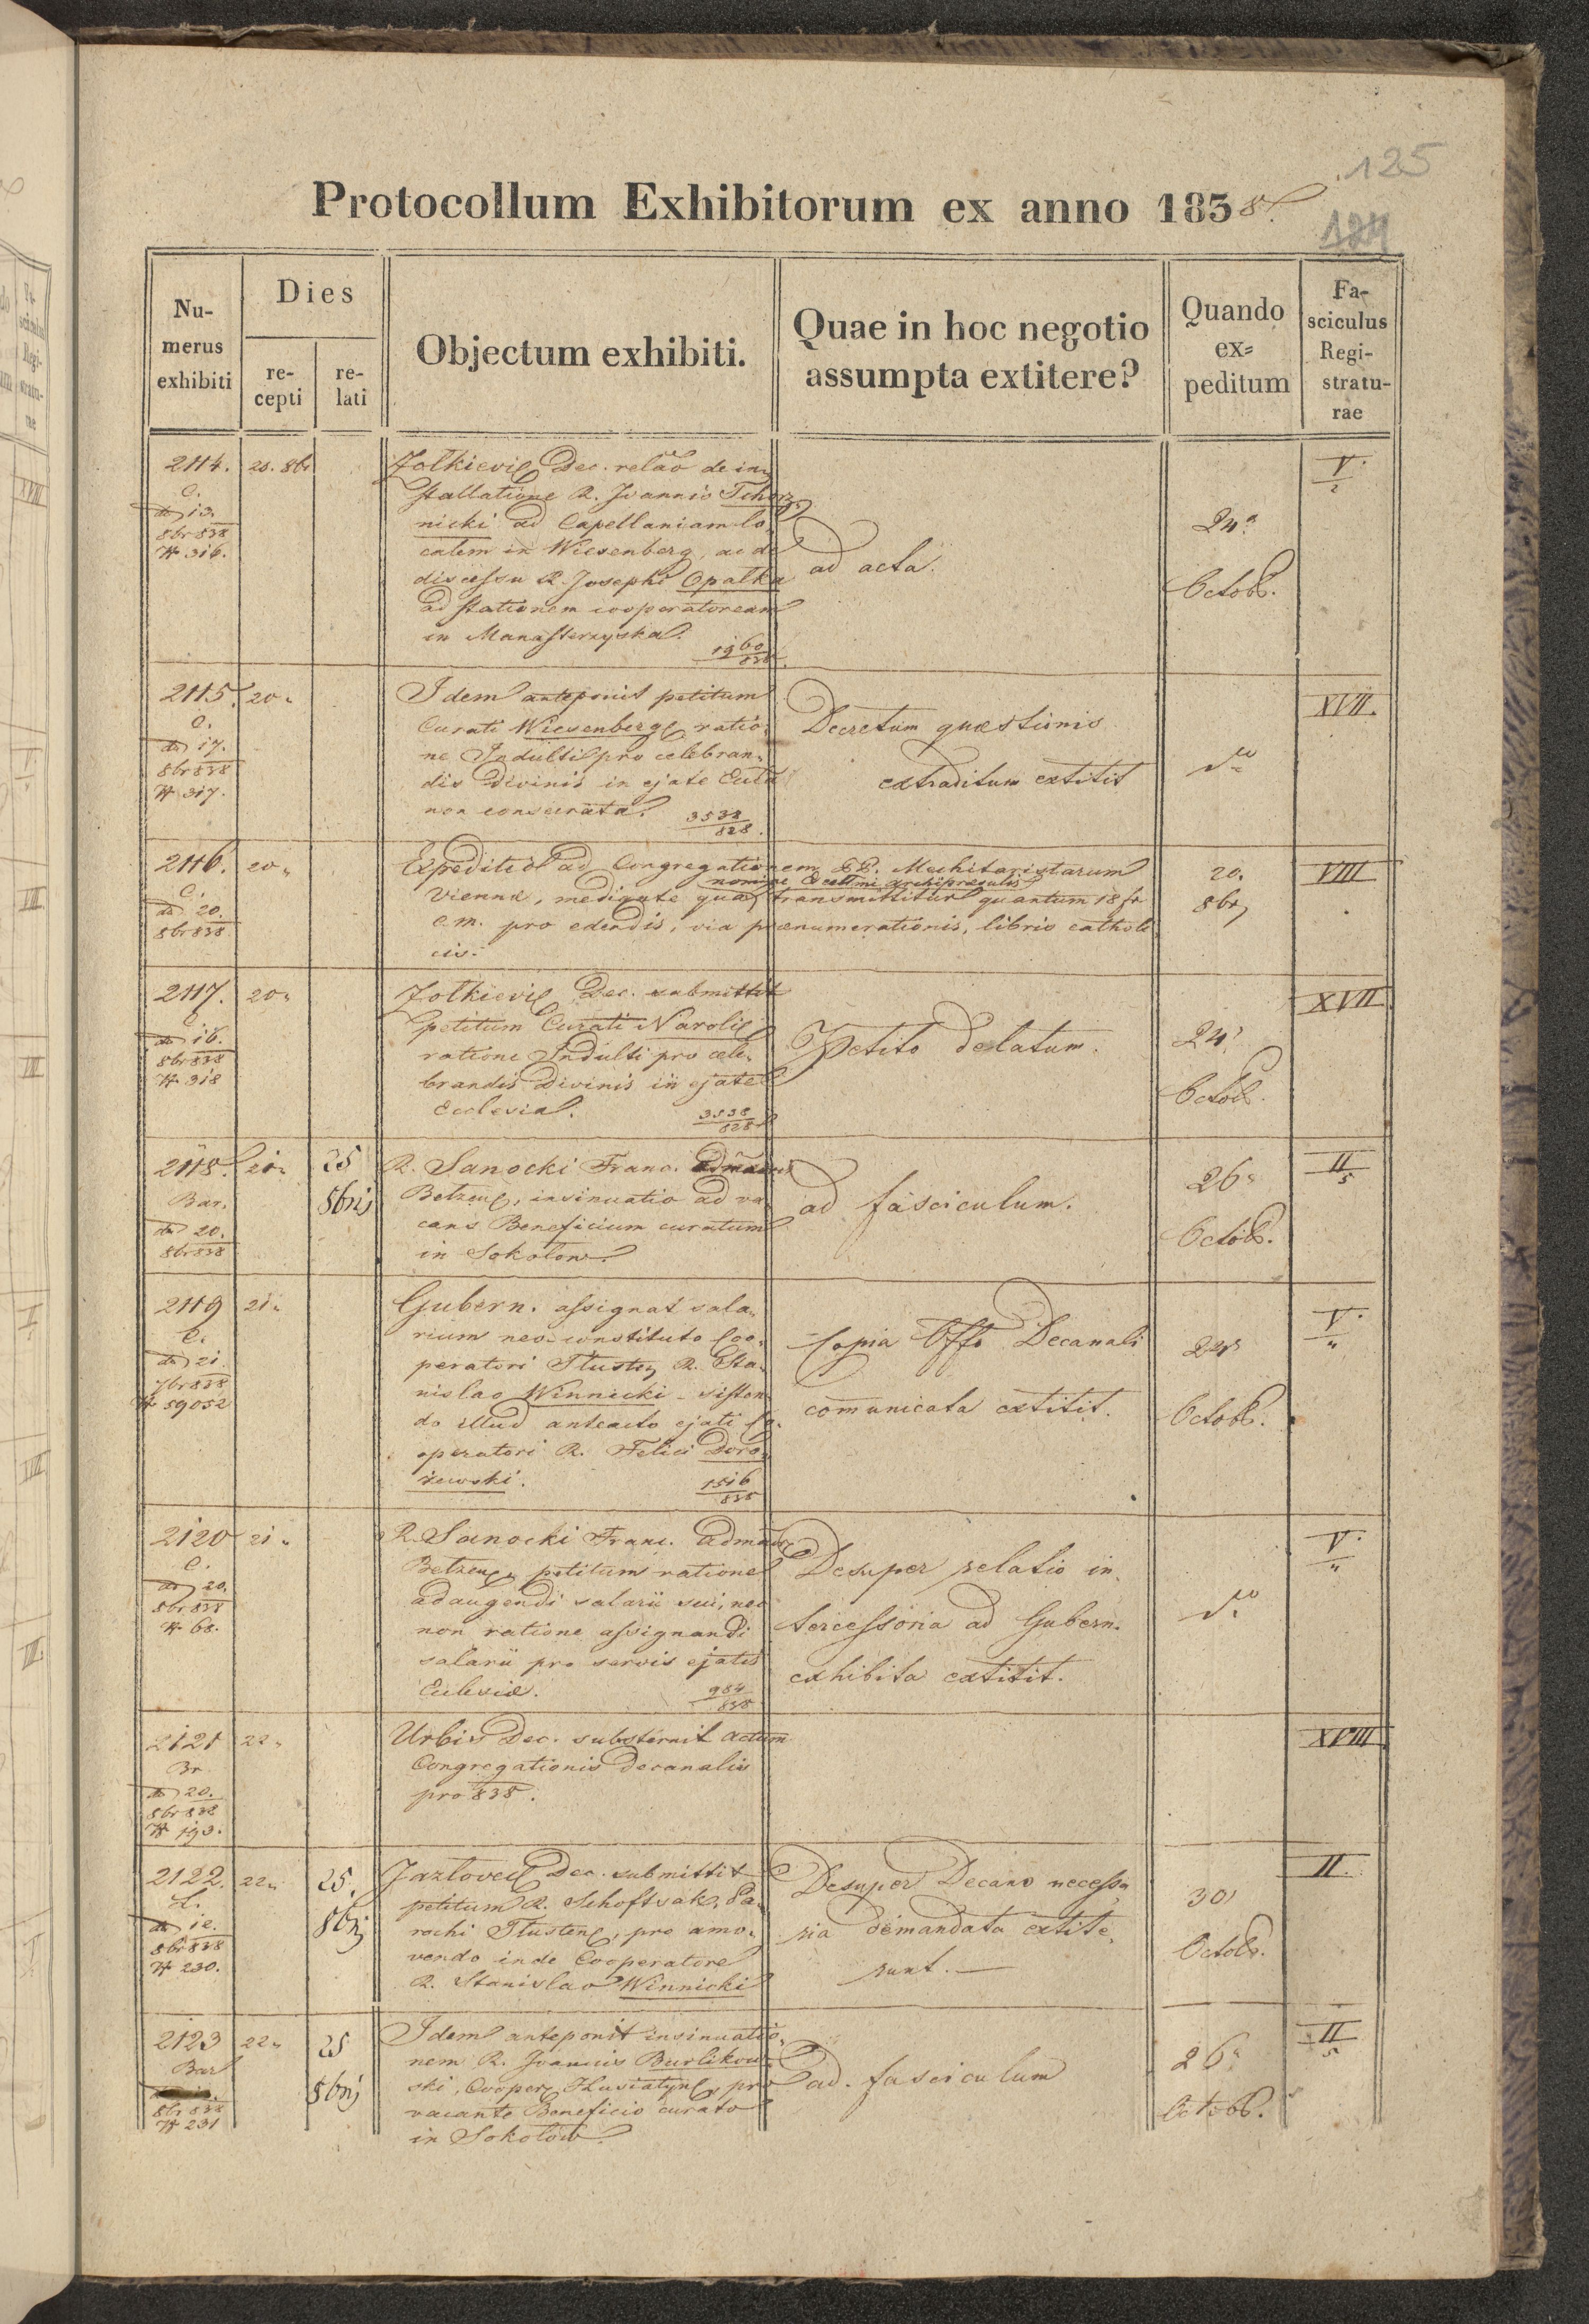 125
Protocollum Exhibitorum ex anno 1838.
124
Numerus exhibiti
Dies
recepti
relati
Objectum exhibiti.
Quae in hoc negotio
assumpta extitere?
Quando
ex=
peditum
Fa-
sciculus
Regi-
stratu-
rae
2114.
C.
dd 13.
8br 838
N 316.
20. 8br
Zolkievi Dec. relao de in,
stallatione R. Joannis Tchorz,
nicki ad Capellaniam lo,
calem in Wiesenberg, ac de
discessu R. Josephi Opalka
ad stationem cooperatoream
in Manasterzyska.
1960
838
ad acta.
24a
Octob.
V.
2
2115.
C.
dd 17.
8br 838
N 317.
20.
Idem anteponit petitum
Curati Wiesenberg ratio,
ne Indulti pro celebran,
dis Divinis in ejate Eccla
non consecrata.
3538
828.
Decretum quæstionis
extraditum extitit
XVII.
2116.
C.
dd 20.
8br 838
20.
Expeditio ad Congregationem PP. Mechitaristarum
nomine Archipræsulis
Viennæ, mediante qua transmittitur quantum 18 fr
c.m. pro edendis, via prænumerationis, libris catholi
cis.
20.
8br
VIII
2117.
C.
dd 16.
8br 838
N 318
20.
Zolkievi Dec. submittit
petitum Curati Naroli
ratione Indulti pro cele,
brandis Divinis in ejate
Ecclesia.
3538
828
Petito delatum.
24.
Octob.
XVII
2118.
Bar.
dd 20.
8br 838
21.
25
8bris
R. Sanocki Franc.
Betzen, insinuatio ad va
cans Beneficium curatum
in Sokolow.
ad fasciculum.
26.
Octob.
II
5
2119
C.
dd 21.
7br 838
N 59052
21.
Gubern. assignat sala,
rium neo-constituto Coo,
peratori Tlusten R. Sta,
nislao Winnicki - sisten
do illud anteacto ejati Co,
operatori R. Felici Doro,
żewski.
1516
838
Copia Offo Decanali
comunicata extitit.
Octob.
V.
"
2120
C.
dd 20.
8br 838
N 68.
21.
R. Sanocki Franc.
Betzen, petitum ratione
adaugendi salarii sui, nec
non ratione assignandi
salarii pro servis ejatis
Eclesiæ.
984
838
Desuper relatio in,
tercessoria ad Gubern.
exhibita extitit.
V.
"
2121
Br
dd 20.
8br 838
N 193.
22.
Urbis Dec. substernit actum
Congregationis decanalis
pro 838.
XVIII
2122.
L.
8br 838
N 230.
22.
25.
8brij
Jazlovec Dec. submittit
petitum R. Schoftvak, Pa,
rochi Tlusten, pro amo,
vendo inde Cooperatore
R. Stanislao Winnicki
Desuper Decano necessa
ria demandata extite,
runt. —
30
Octob.
II.
2123
Bar
8br 838
N 231
22.
25
8brij
Idem anteponit insinuatio,
nem R. Joannis Burlikow
ski, Cooper Husiatyn, pro
vacante Beneficio curato
in Sokolow.
ad. fasciculum
26.
Octob.
II
5